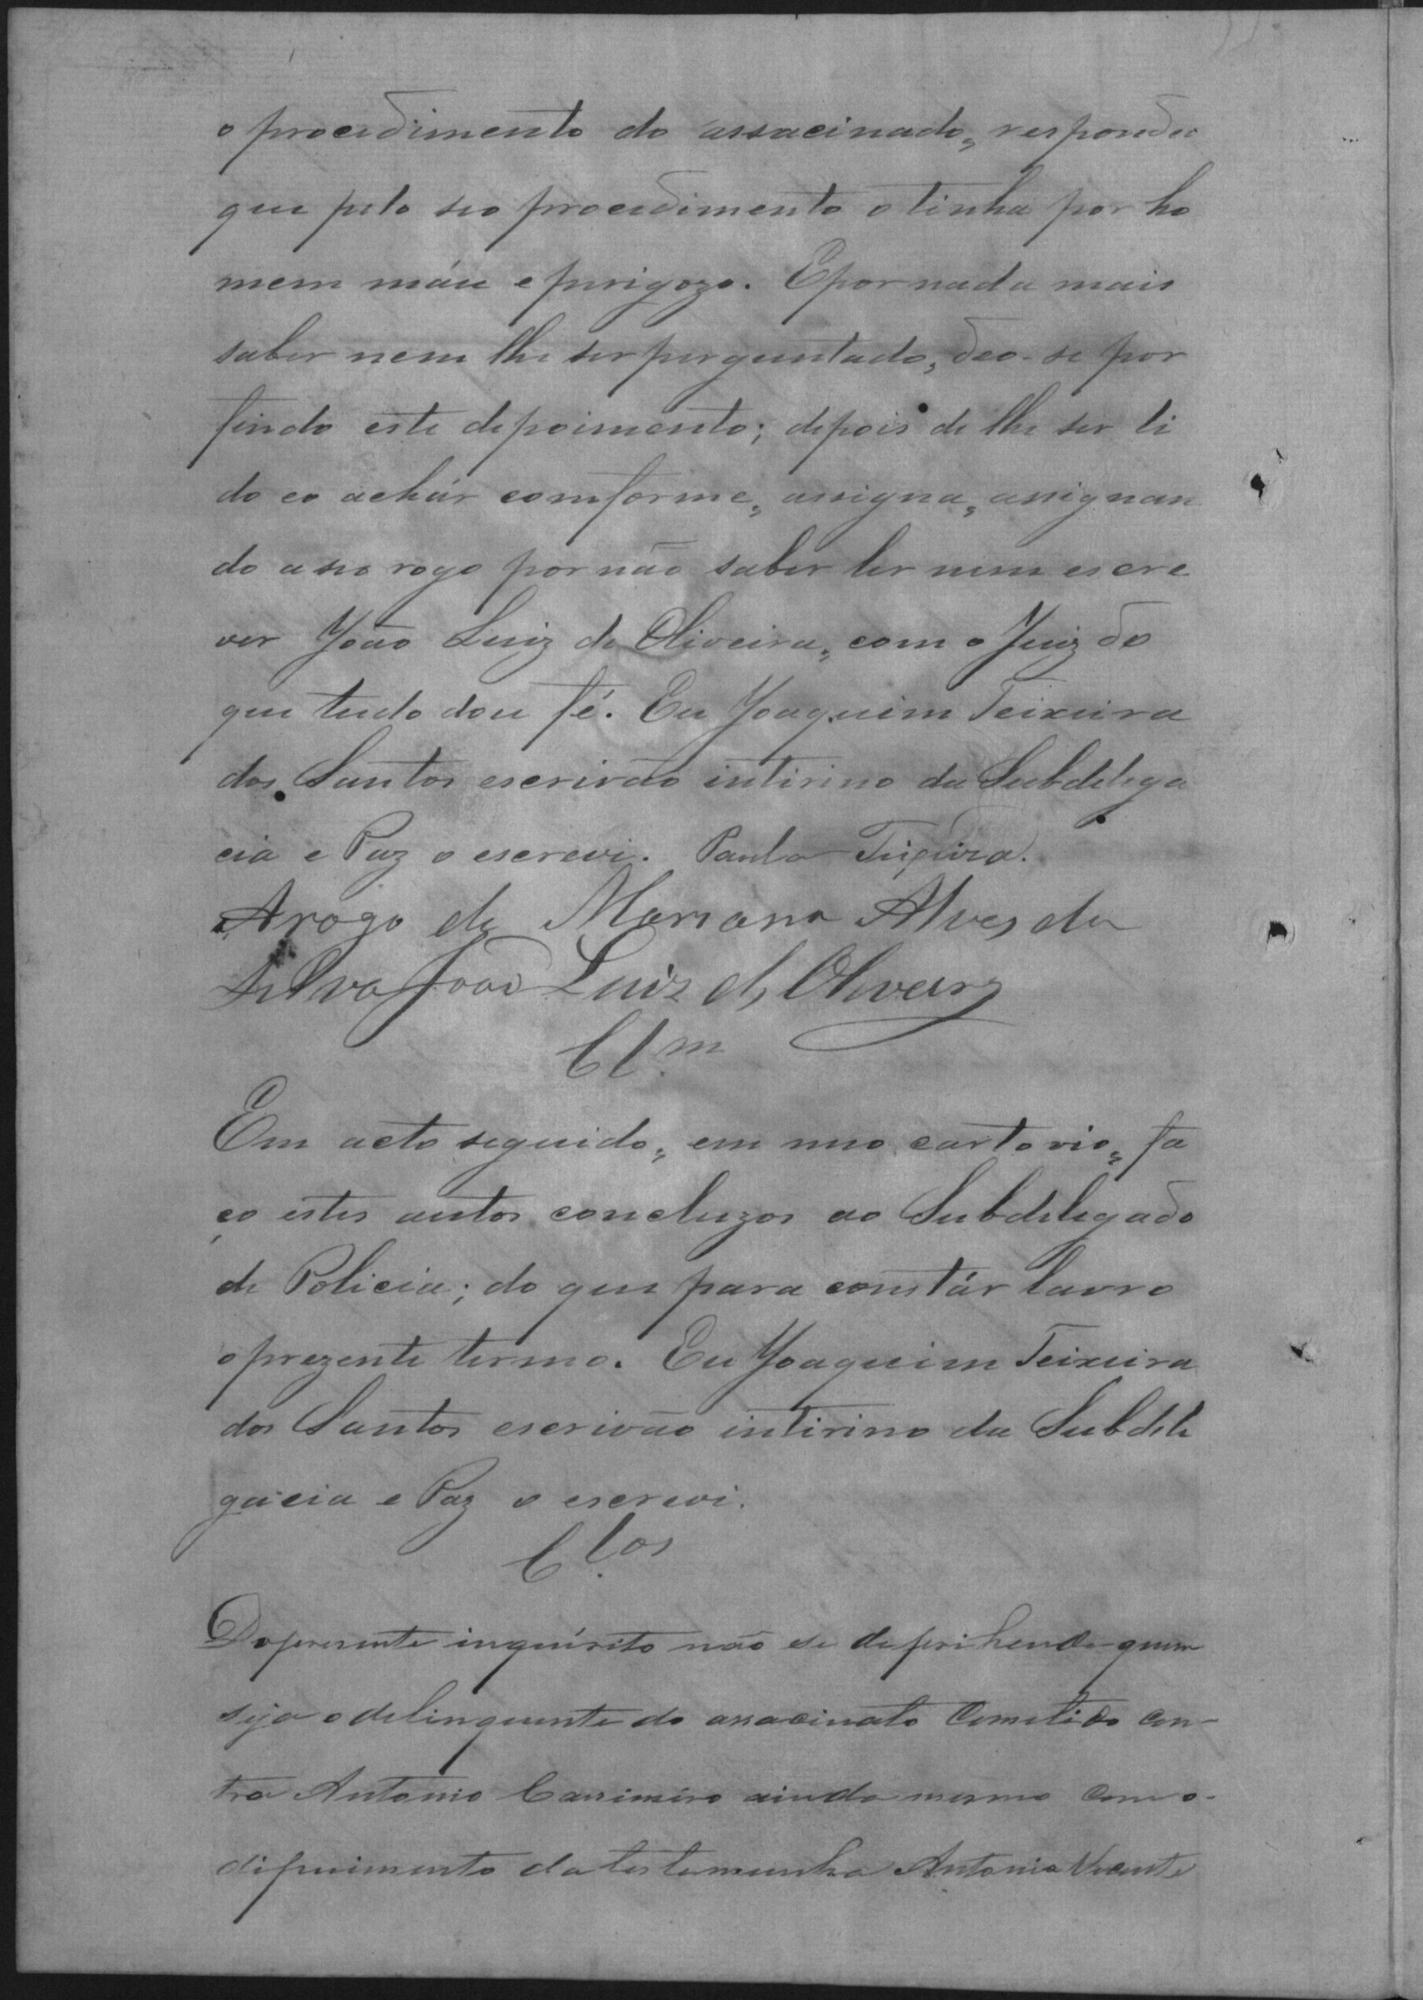 o procedimento do assacinado, respondeo
que pelo seo procedimento o tinha por ho
mem máu e perigozo. E por nada mais
saber nem lhe ser perguntado, deo-se por
findo este depoimento; depois de lhe ser li
do e o achár comforme, assigna, assignan
do a seo rogo por não saber ler nem escre
ver João Luiz de Oliveira, com o Juiz do
que tudo dou fé. Eu Joaquim Teixeira
dos Santos escrivão intirino da Subdelega
cia e Paz o escrevi. Paula Teixeira.
Arogo de Mariano Alves da
Silva João Luiz de Oliveira
Cl.m
Em acto seguido, em meo cartorio, fa
ço estes autos concluzos ao Subdelegado
de Policia; do que para constár lavro
o prezente termo. Eu Joaquim Teixeira
dos Santos escrivão intirino da Subdele
gacia e Paz o escrevi.
Cl.os
Do presente inquérito não se deprihende quem
seja o delinquente do assacinato Cometido con-
tra Antonio Cassimiro ainda mesmo Com o-
dipuimento da testemunha Antonio Vicente